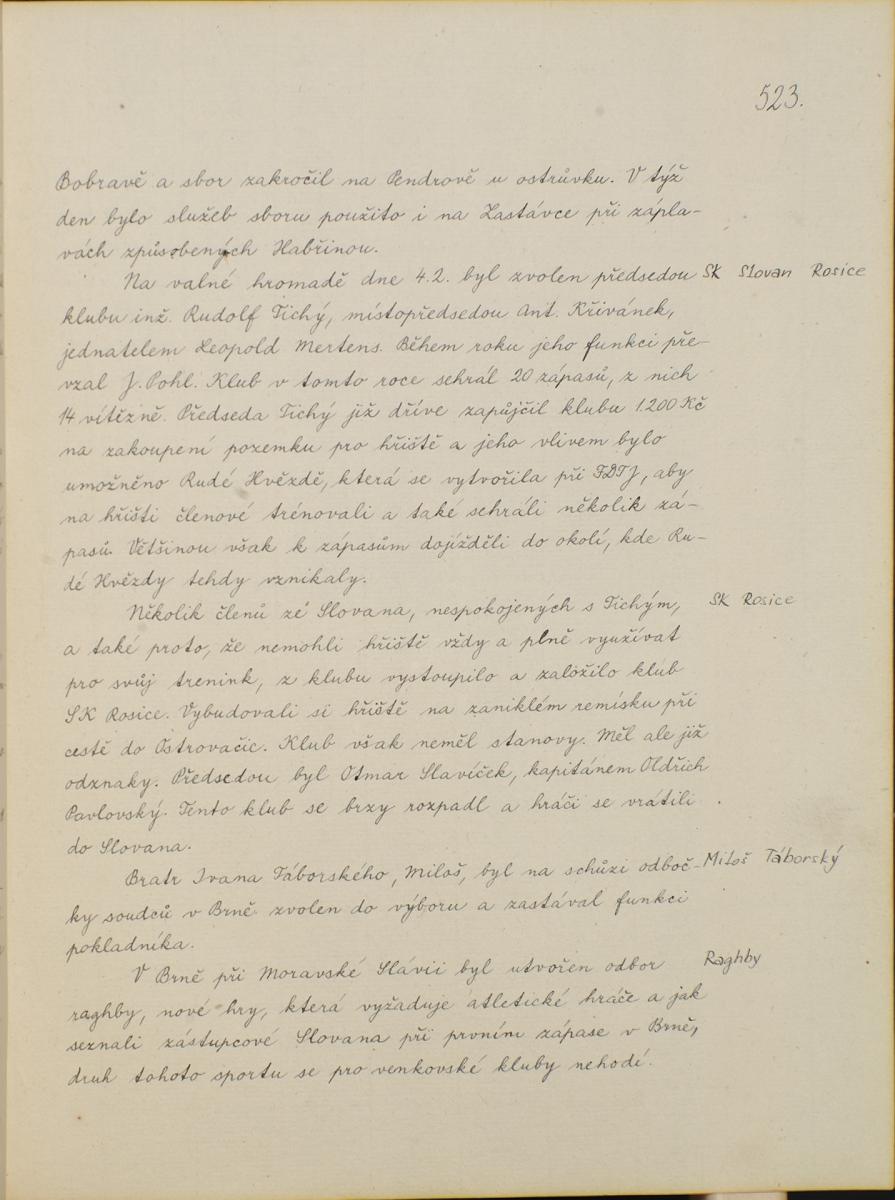 523.
Bobravě a sbor zakročil na Pendrově u ostrůvku. V týž
den bylo služeb sboru použito i na Zastávce při zápla-
vách způsobených Habřinou.
Na valné hromadě dne 4.2. byl zvolen předsedou SK Slovan Rosice
klubu inž. Rudolf Tichý, místopředsedou Ant. Křivánek,
jednatelem Leopold Mertens. Během roku jeho funkci pře-
vzal J. Pohl. Klub v tomto roce sehrál 20 zápasů, z nich
14 vítězně. Předseda Tichý již dříve zapůjčil klubu 1.200 Kč
na zakoupení pozemku pro hřiště a jeho vlivem bylo
umožněno Rudé Hvězdě, která se vytvořila při FDTJ, aby
na hřišti členové trénovali a také sehráli několik zá-
pasů. Většinou však k zápasům dojížděli do okolí, kde Ru-
dé Hvězdy tehdy vznikaly.
Několik členů ze Slovana, nespokojených s Tichým, SK Rosice
a také proto, že nemohli hřiště vždy a plně využívat
pro svůj trenink, z klubu vystoupilo a založilo klub
SK Rosice. Vybudovali si hřiště na zaniklém remísku při
cestě do Ostrovačic. Klub však neměl stanovy. Měl ale již
odznaky. Předsedou byl Otmar Slavíček, kapitánem Oldřich
Pavlovský. Tento klub se brzy rozpadl a hráči se vrátili
do Slovana.
Bratr Ivana Táborského, Miloš, byl na schůzi odboč- Miloš Táborský
ky soudců v Brně zvolen do výboru a zastával funkci
pokladníka.
V Brně při Moravské Slávii byl utvořen odbor Raghby
raghby, nové hry, která vyžaduje atletické hráče a jak
seznali zástupcové Slovana při prvním zápase v Brně,
druh tohoto sportu se pro venkovské kluby nehodí.